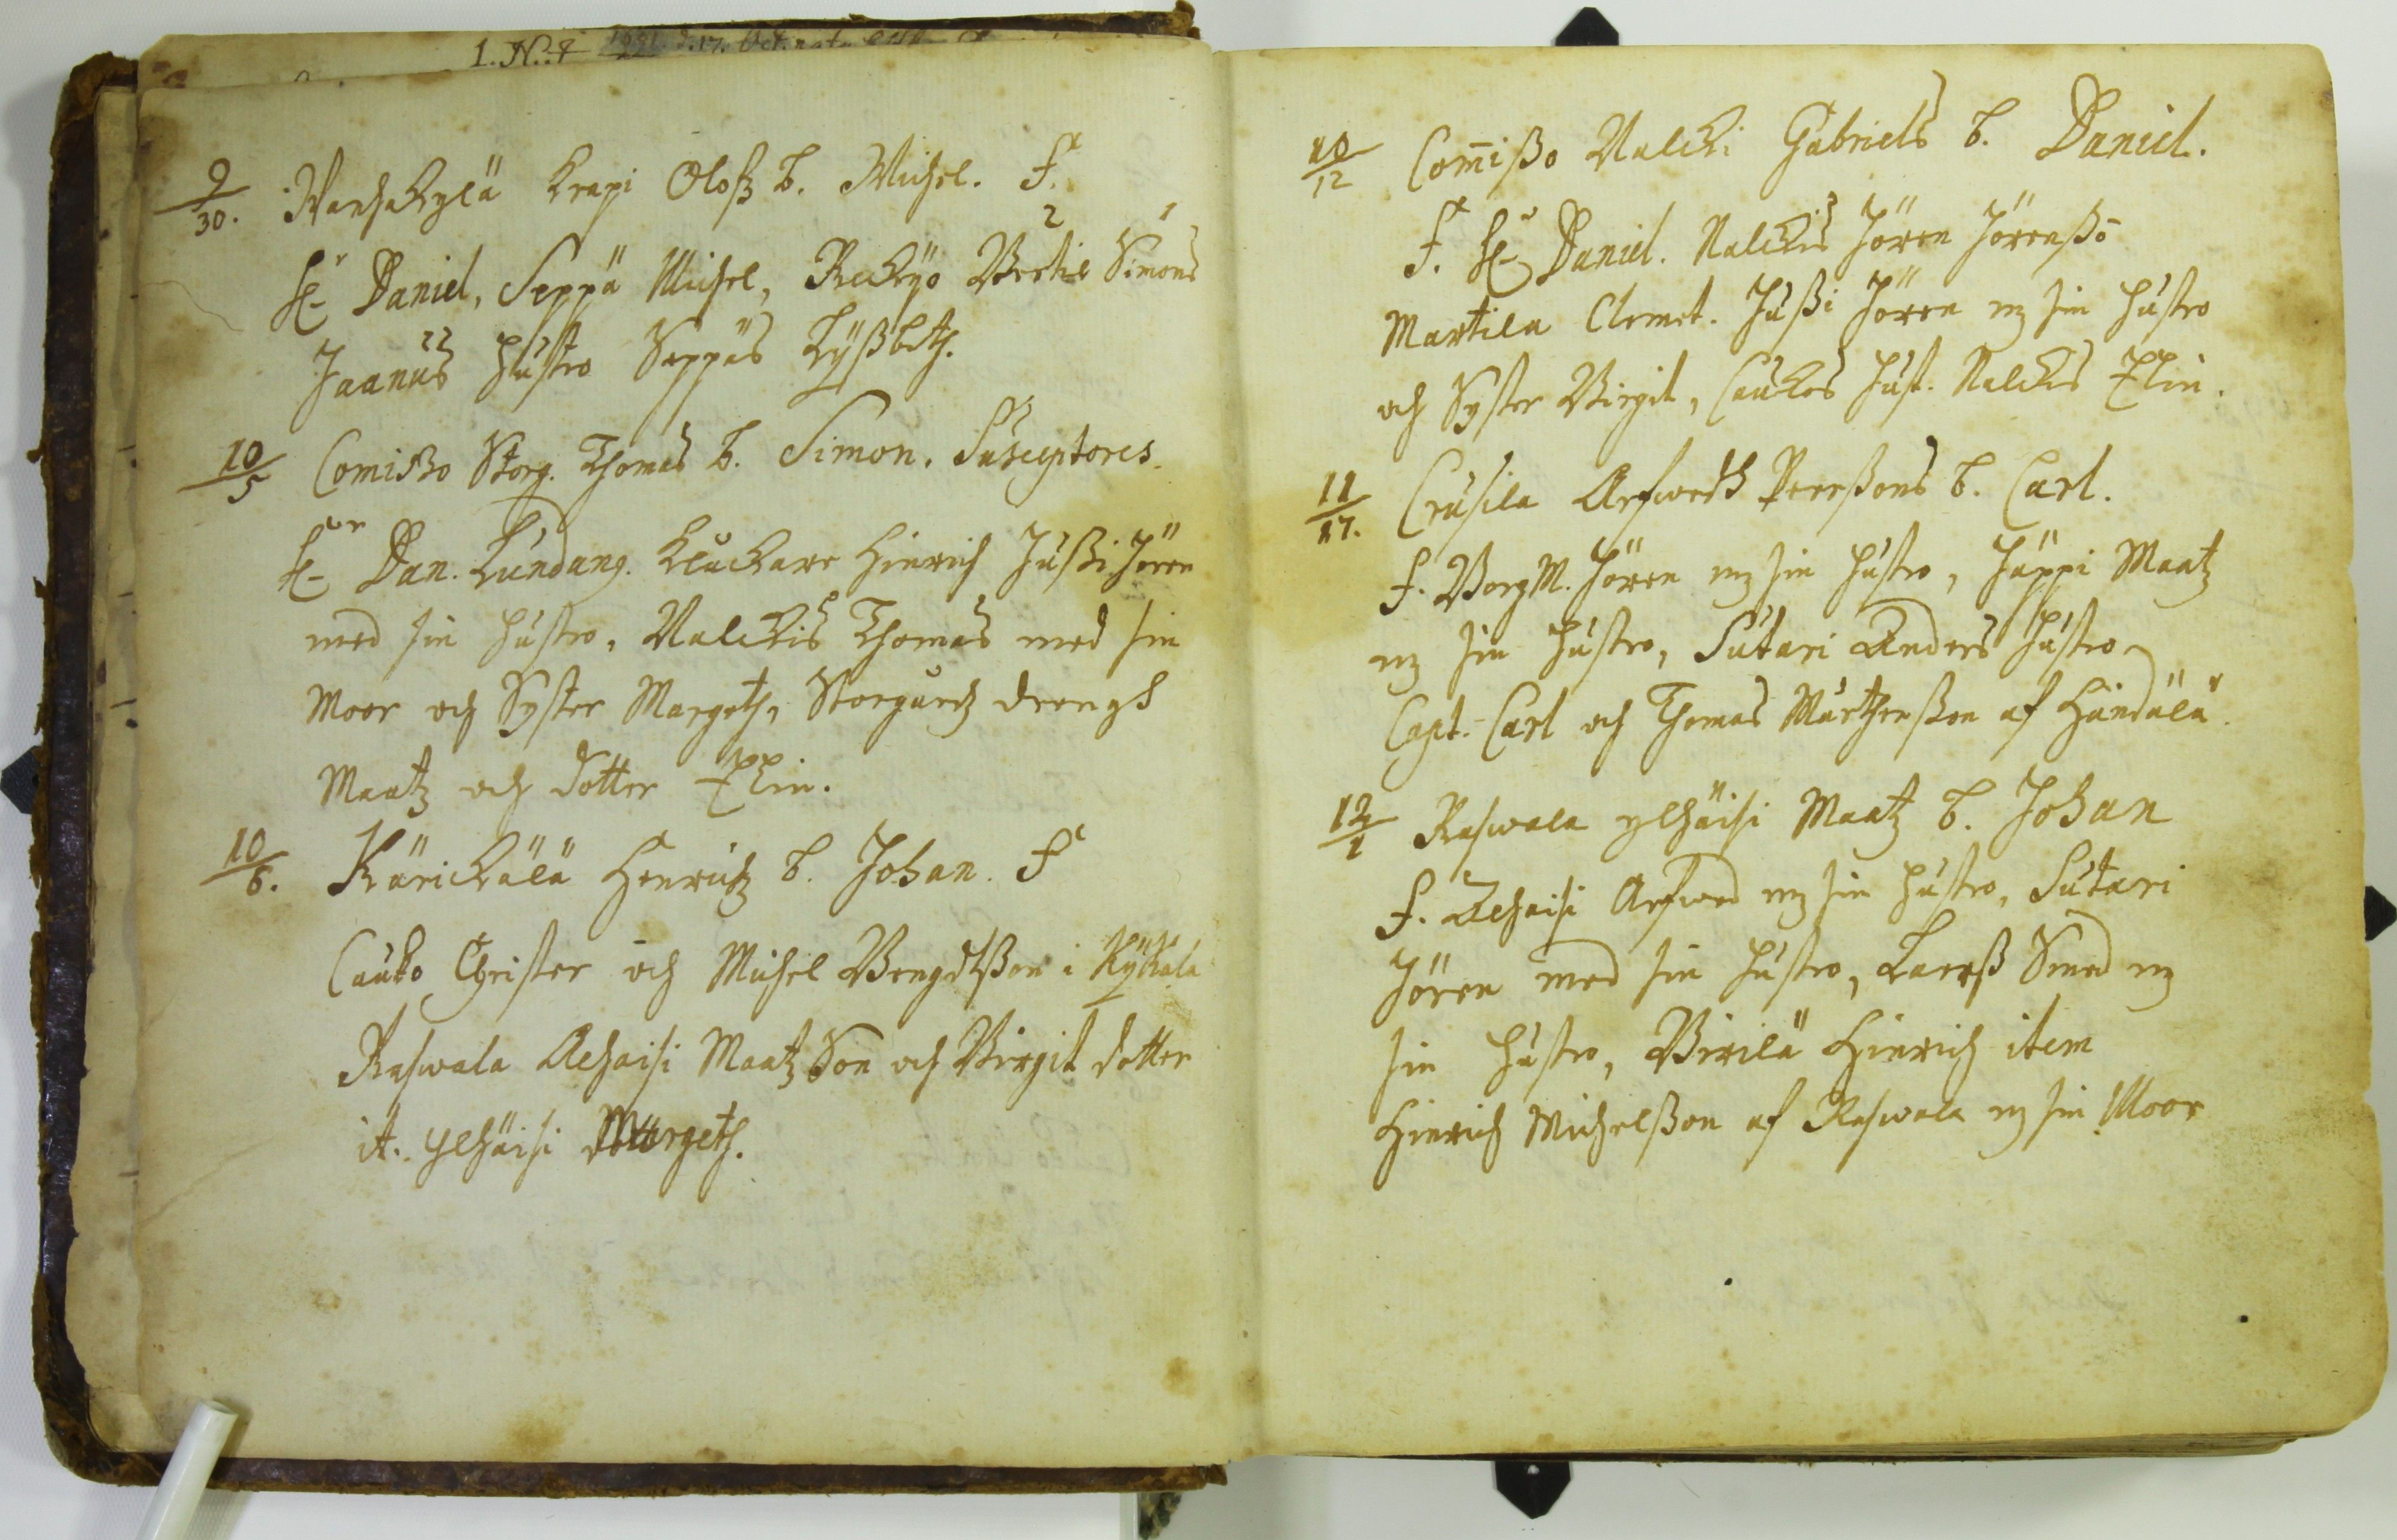 1. N:4
9/30. Wanhakylä Krapi Olofz b. Michel. F.
H- Daniel, Seppä Michel, Reckijo Bertil Simons
Jaanus Hustro Seppäs Lijßbeth.
10/5 Comißo Storg. Thomas b. Simon. Susceptores.
H- Dan. Lundang. Kluckare Hinrich Jußi Jören
med sin hustro, Nalckis Thomas med sin
Moor och Syster Margeth, Storgurtz drengh
Maatz och dotter Elin.
10/6. Kärickälä Henrichz b. Johan. F
Cauko Christer och Michel Bengdtßon i Kykala
Raswala Alhaisi Maatz Son och Birgit dotter
it. ylhäisi Margeth.
10/12 Com̄ißo Nalcki Gabriels b. Daniel.
F. H- Daniel. Nalckis Jören Jörenßo
Martila Clemet. Jußi Jören mz sin hustro
och Syster Birgit, Caukos hust. Nalckis Elin.
11/17. Crusila Arfwedh Peerßons b. Carl.
F. Borg M. Jören mz sin hustro, Jäppi Maatz
mz sin hustro, Sutari Anders hustro
Capt. Carl och Thomas Mårthenßon af Händälä.
12/1 Raswala ylhäisi Maatz b. Johan
F. Alhaisi Arfwed mz sin hustro, Sutari
Jören med sin hustro, Larß Smed mz
sin hustro, Birilä Hinrich item
Hinrich Michelßon af Raswala mz sin Moor